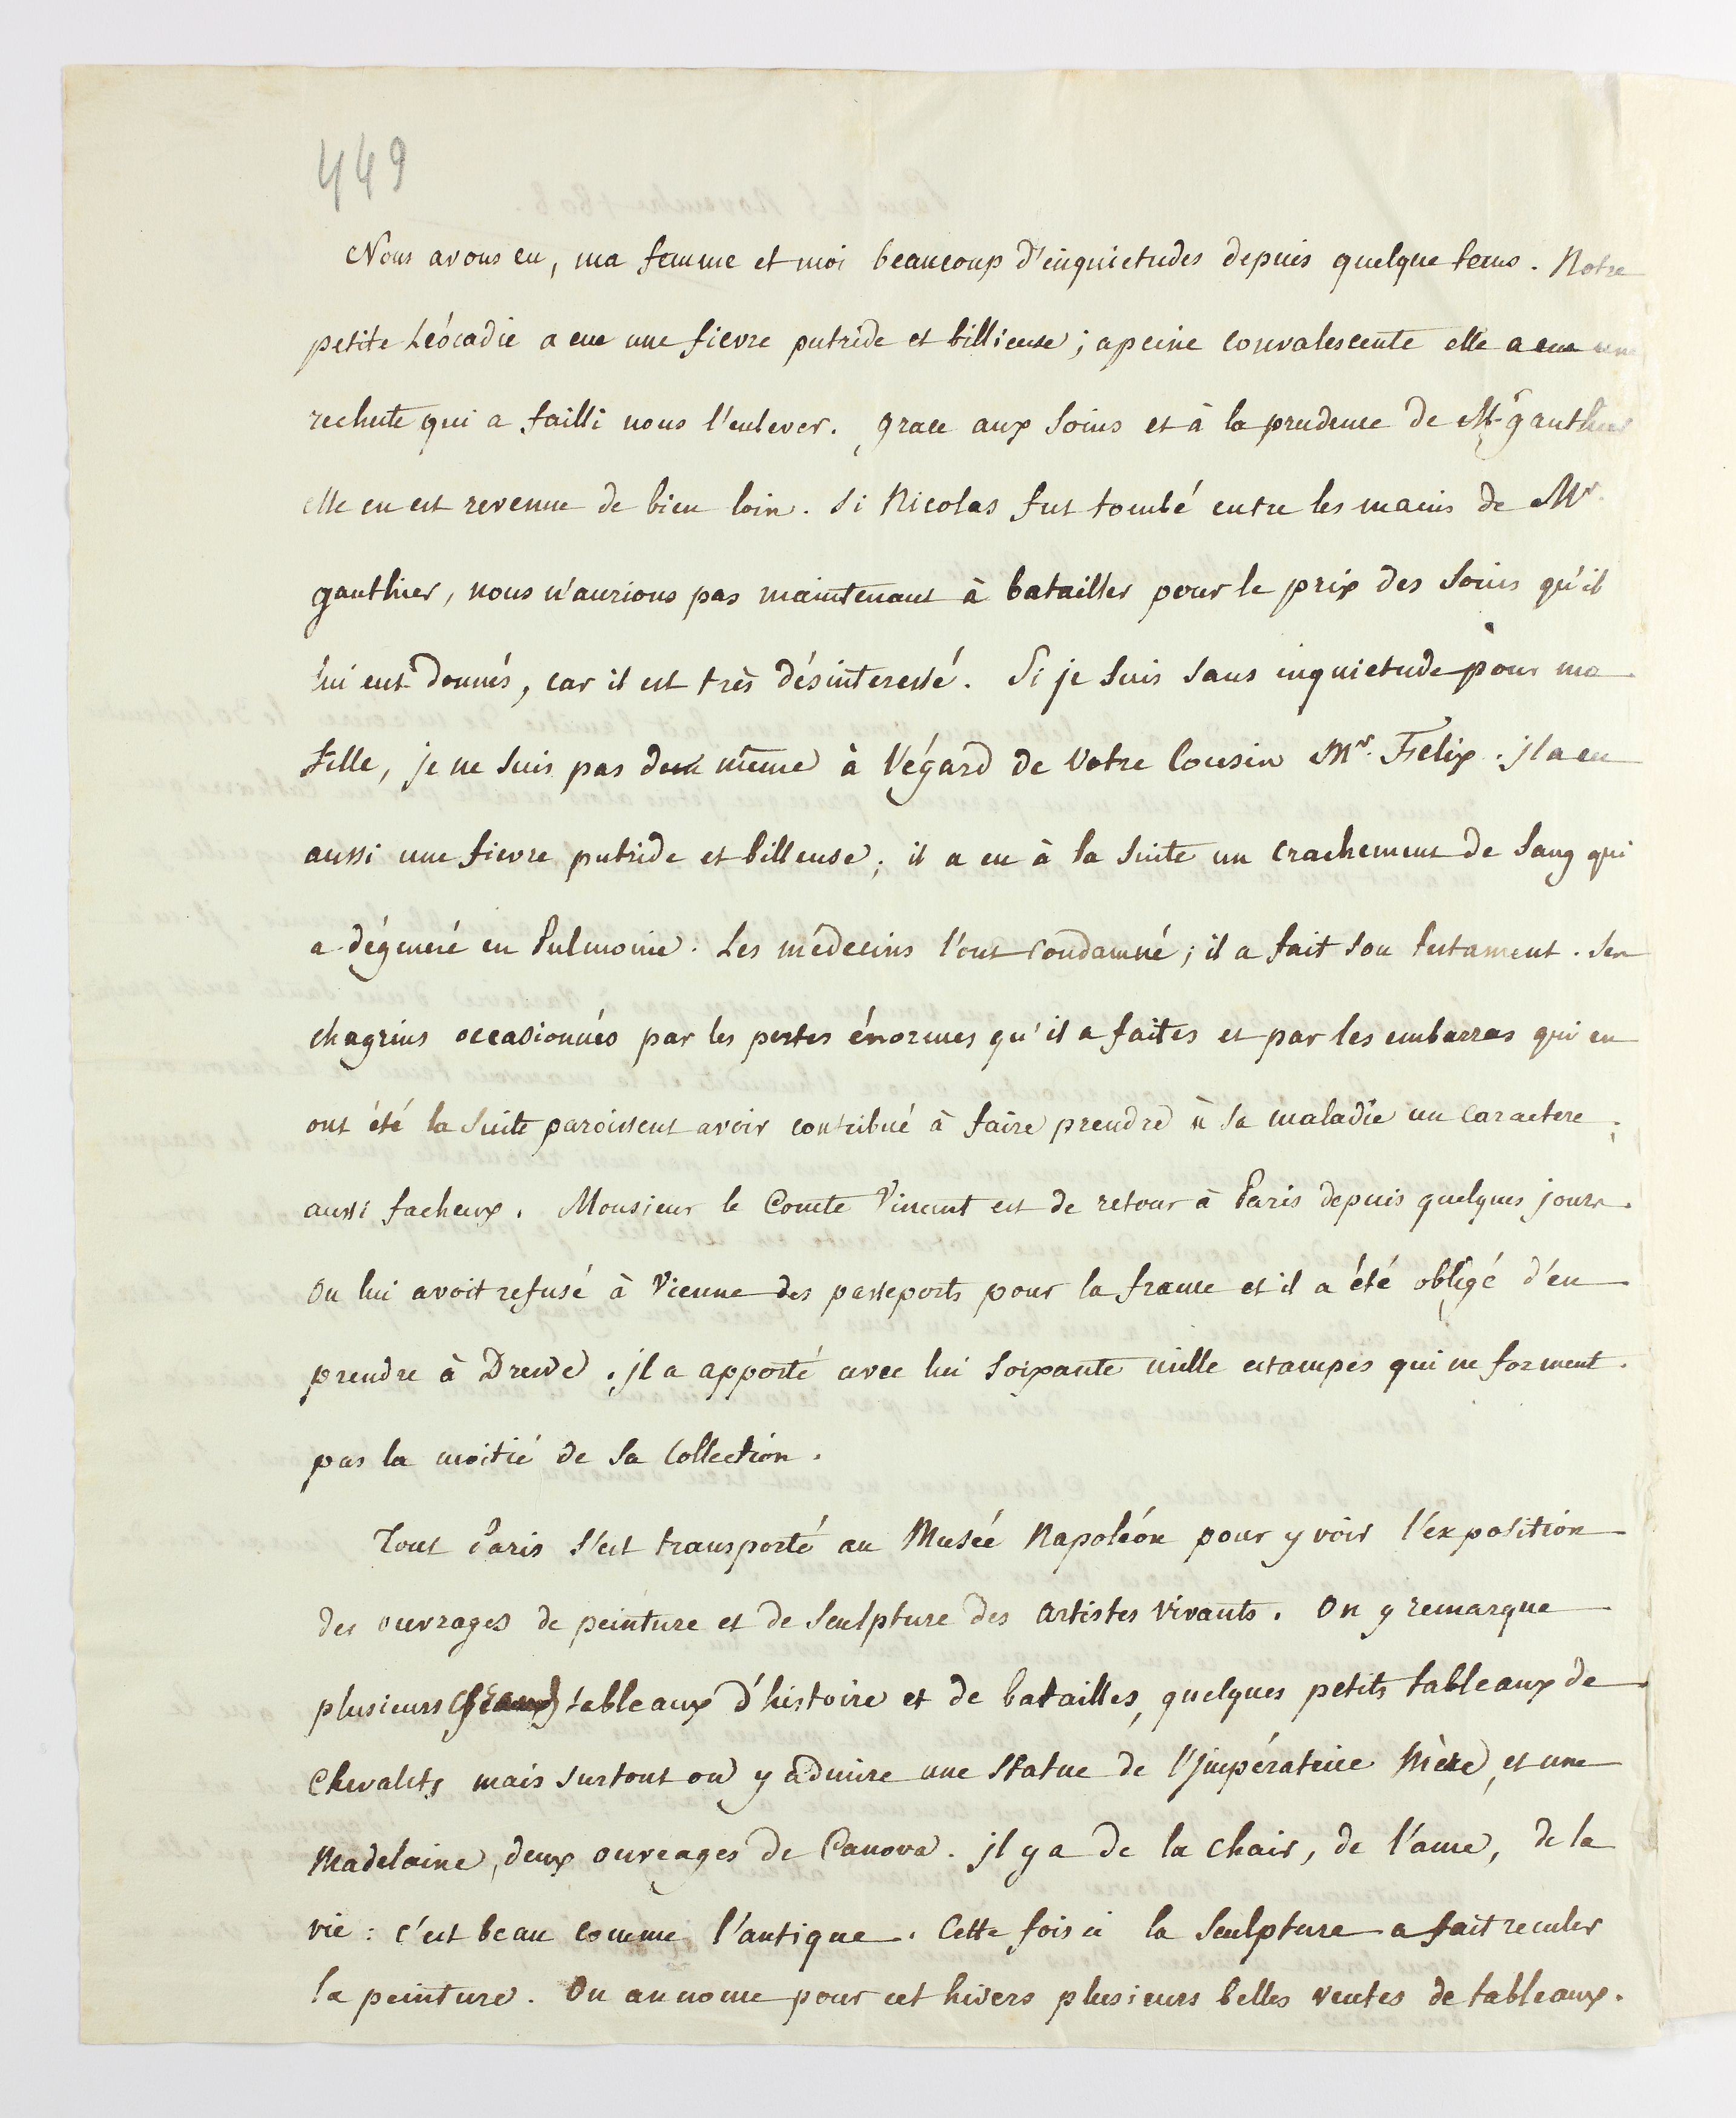 449
Nous avons eu, ma femme et moi beaucoup d'inquietudes depuis quelque tems. Notre
petite Léocadie a eue une fievre putride et billieuse; apeine convalescente elle a eue une
rechute qui a failli nous l'enlever. grace aux soins et à la prudence de Mr. gauthier
elle en est revenue de bien loin. Si Nicolas fut tombé entre les mains de Mr.
gauthier, nous n'aurions pas maintenant à batailler pour le prix des soins qu'il
lui eut donnés, car il est très désinteressé. Si je suis sans inquietude pour ma
fille, je ne suis pas de même à l'égard de votre cousin Mr. Felix. il a eu
aussi une fievre putride et billeuse; il a eu à la suite un crachement de sang qui
a dégeneré en Pulmonie. Les médecins l'ont condamné; il a fait son testament. Ses
chagrins occasionnés par les pertes énormes qu'il a faites et par les embarras qui en
ont été la suite paroissent avoir contribué à faire prendre à sa maladie un caractere
aussi facheux. Monsieur le Comte Vincent est de retour à Paris depuis quelques jours.
On lui avoit refusé à Vienne des passeports pour la france et il a été obligé d'en
prendre à Dresde. il a apporté avec lui soixante mille estampes qui ne forment
pas la moitié de sa Collection.
Tout Paris s'est transporté au Musée Napoléon pour y voir l'exposition
des ouvrages de peinture et de sculpture des artistes vivants. On y remarque
plusieurs grands tableaux d'histoire et de batailles, quelques petits tableaux de
Chevalets mais surtout on y admire une statue de l'Jmpératrice Mère, et une
Madelaine, deux ouvrages de Canova. il y a de la chair, de l'ame, de la
vie: c'est beau comme l'antique. Cette fois ci la sculpture a fait reculer
la peinture. On annonce pour cet hivers plusieurs belles ventes de tableaux.